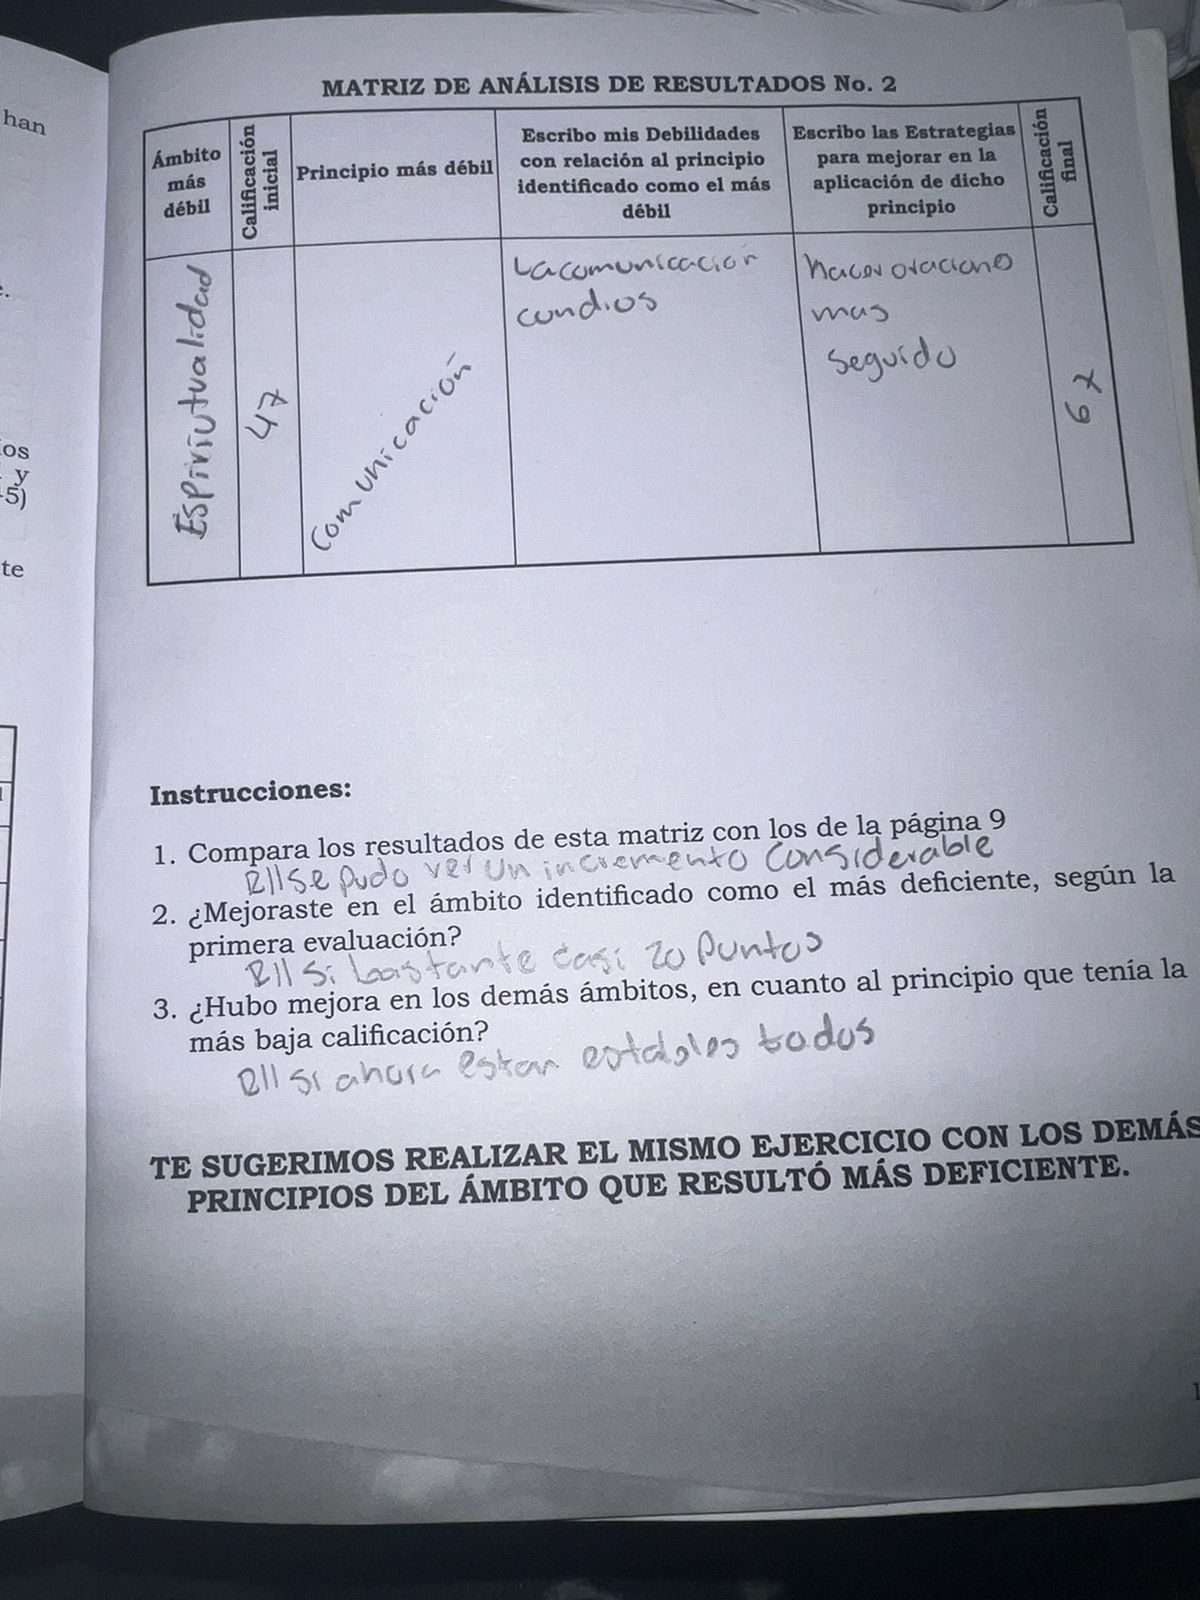 han
.
os
y
-5)
te
MATRIZ DE ANÁLISIS DE RESULTADOS No. 2
Ámbito
más
débil
Calificación
inicial
Principio más débil
Escribo mis Debilidades
con relación al principio
identificado como el más
débil
Escribo las Estrategias
para mejorar en la
aplicación de dicho
principio
Calificación
final
Espiriutualidad
47
Comunicación
La comunicacion
con dios
hacer oracione
mas
seguido
67
Instrucciones:
1. Compara los resultados de esta matriz con los de la página 9
R// se pudo ver un incremento considerable
2. ¿Mejoraste en el ámbito identificado como el más deficiente, según la
primera evaluación?
R// si bastante casi 20 puntos
3. ¿Hubo mejora en los demás ámbitos, en cuanto al principio que tenía la
más baja calificación?
R// si ahora estan todos
TE SUGERIMOS REALIZAR EL MISMO EJERCICIO CON LOS DEMÁS
PRINCIPIOS DEL ÁMBITO QUE RESULTÓ MÁS DEFICIENTE.